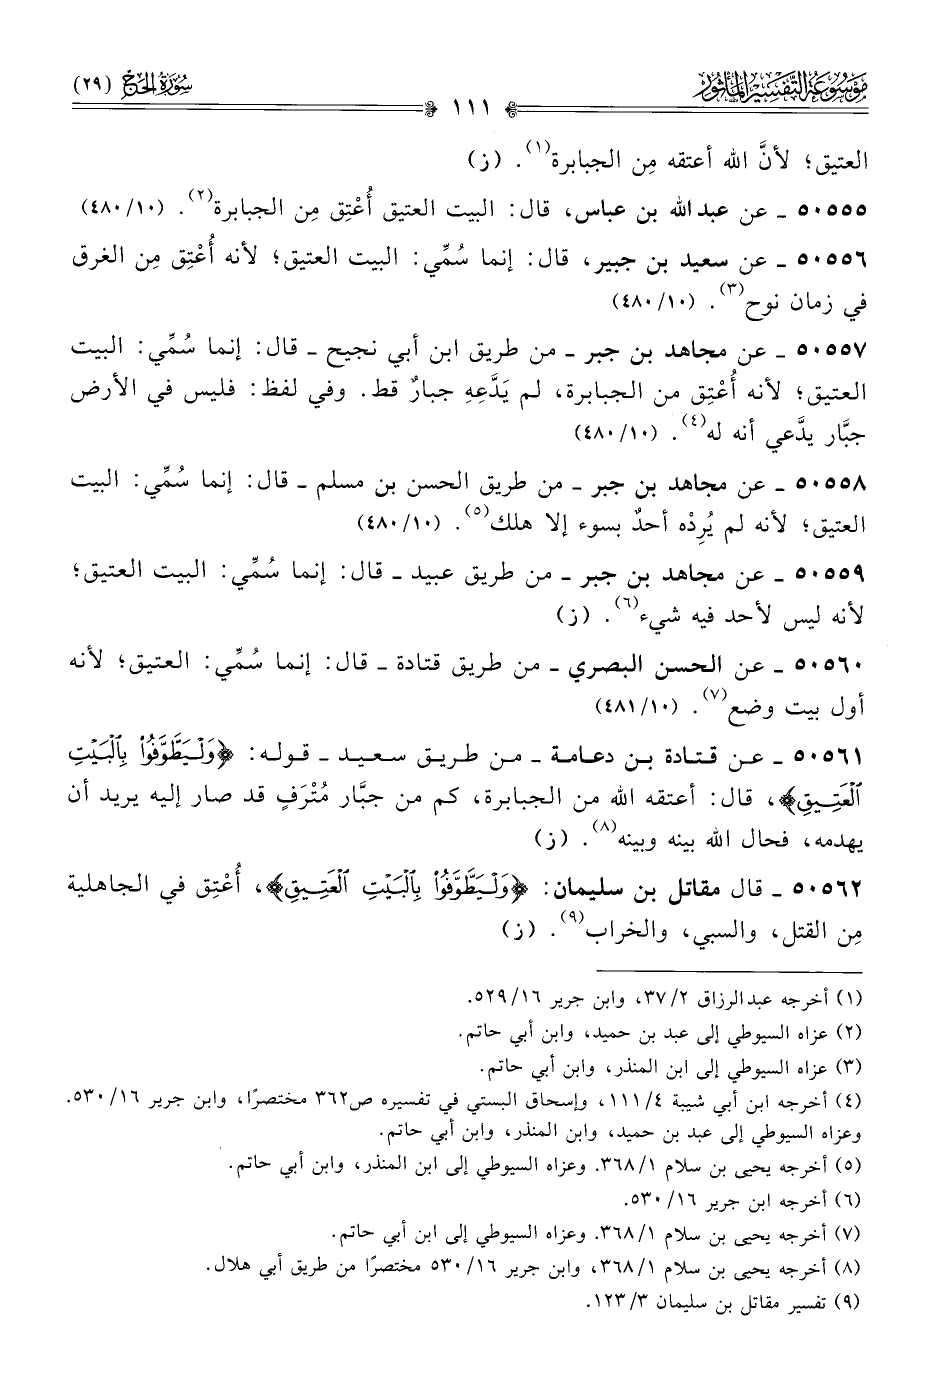 موسوعة التفسير المأثور
سورة الحج (٢٩)
١١١
العتيق؛ لأنَّ الله أعتقه مِن الجبابرة(١). (ز)
٥٠٥٥٥ ـ عن عبد الله بن عباس، قال: البيت العتيق أُعْتِق مِن الجبابرة(٢). (١٠/ ٤٨٠)
٥٠٥٥٦ ـ عن سعيد بن جبير، قال: إنما سُمِّي: البيت العتيق؛ لأنه أُعْتِق مِن الغرق
في زمان نوح(٣). (١٠/ ٤٨٠)
٥٠٥٥٧ ـ عن مجاهد بن جبر ـ من طريق ابن أبي نجيح ـ قال: إنما سُمِّي: البيت
العتيق؛ لأنه أُعْتِق من الجبابرة، لم يَدَّعِهِ جبارٌ قط. وفي لفظ: فليس في الأرض
جبَّار يدَّعي أنه له(٤). (١٠/ ٤٨٠)
٥٠٥٥٨ ـ عن مجاهد بن جبر ـ من طريق الحسن بن مسلم ـ قال: إنما سُمِّي: البيت
العتيق؛ لأنه لم يُرِدْه أحدٌ بسوء إلا هلك(٥). (١٠/ ٤٨٠)
٥٠٥٥٩ ـ عن مجاهد بن جبر ـ من طريق عبيد ـ قال: إنما سُمِّي: البيت العتيق؛
لأنه ليس لأحد فيه شيء(٦). (ز)
٥٠٥٦٠ ـ عن الحسن البصري ـ من طريق قتادة ـ قال: إنما سُمِّي: العتيق؛ لأنه
أول بيت وضع(٧). (١٠/ ٤٨١)
٥٠٥٦١ ـ عن قتادة بن دعامة ـ من طريق سعيد ـ قوله: ﴿وَلْيَطَّوَّفُوا۟ بِٱلْبَيْتِ
ٱلْعَتِيقِ﴾، قال: أعتقه الله من الجبابرة، كم من جبَّار مُتْرَفٍ قد صار إليه يريد أن
يهدمه، فحال الله بينه وبينه(٨). (ز)
٥٠٥٦٢ ـ قال مقاتل بن سليمان: ﴿وَلْيَطَّوَّفُوا۟ بِٱلْبَيْتِ ٱلْعَتِيقِ﴾، أُعْتِق في الجاهلية
مِن القتل، والسبي، والخراب(٩). (ز)
(١) أخرجه عبد الرزاق ٢/ ٣٧، وابن جرير ١٦/ ٥٢٩.
(٢) عزاه السيوطي إلى عبد بن حميد، وابن أبي حاتم.
(٣) عزاه السيوطي إلى ابن المنذر، وابن أبي حاتم.
(٤) أخرجه ابن أبي شيبة ٤/ ١١١، وإسحاق البستي في تفسيره ص٣٦٢ مختصرًا، وابن جرير ١٦/ ٥٣٠.
وعزاه السيوطي إلى عبد بن حميد، وابن المنذر، وابن أبي حاتم.
(٥) أخرجه يحيى بن سلام ١/ ٣٦٨. وعزاه السيوطي إلى ابن المنذر، وابن أبي حاتم.
(٦) أخرجه ابن جرير ١٦/ ٥٣٠.
(٧) أخرجه يحيى بن سلام ١/ ٣٦٨. وعزاه السيوطي إلى ابن أبي حاتم.
(٨) أخرجه يحيى بن سلام ١/ ٣٦٨، وابن جرير ١٦/ ٥٣٠ مختصرًا من طريق أبي هلال.
(٩) تفسير مقاتل بن سليمان ٣/ ١٢٣.